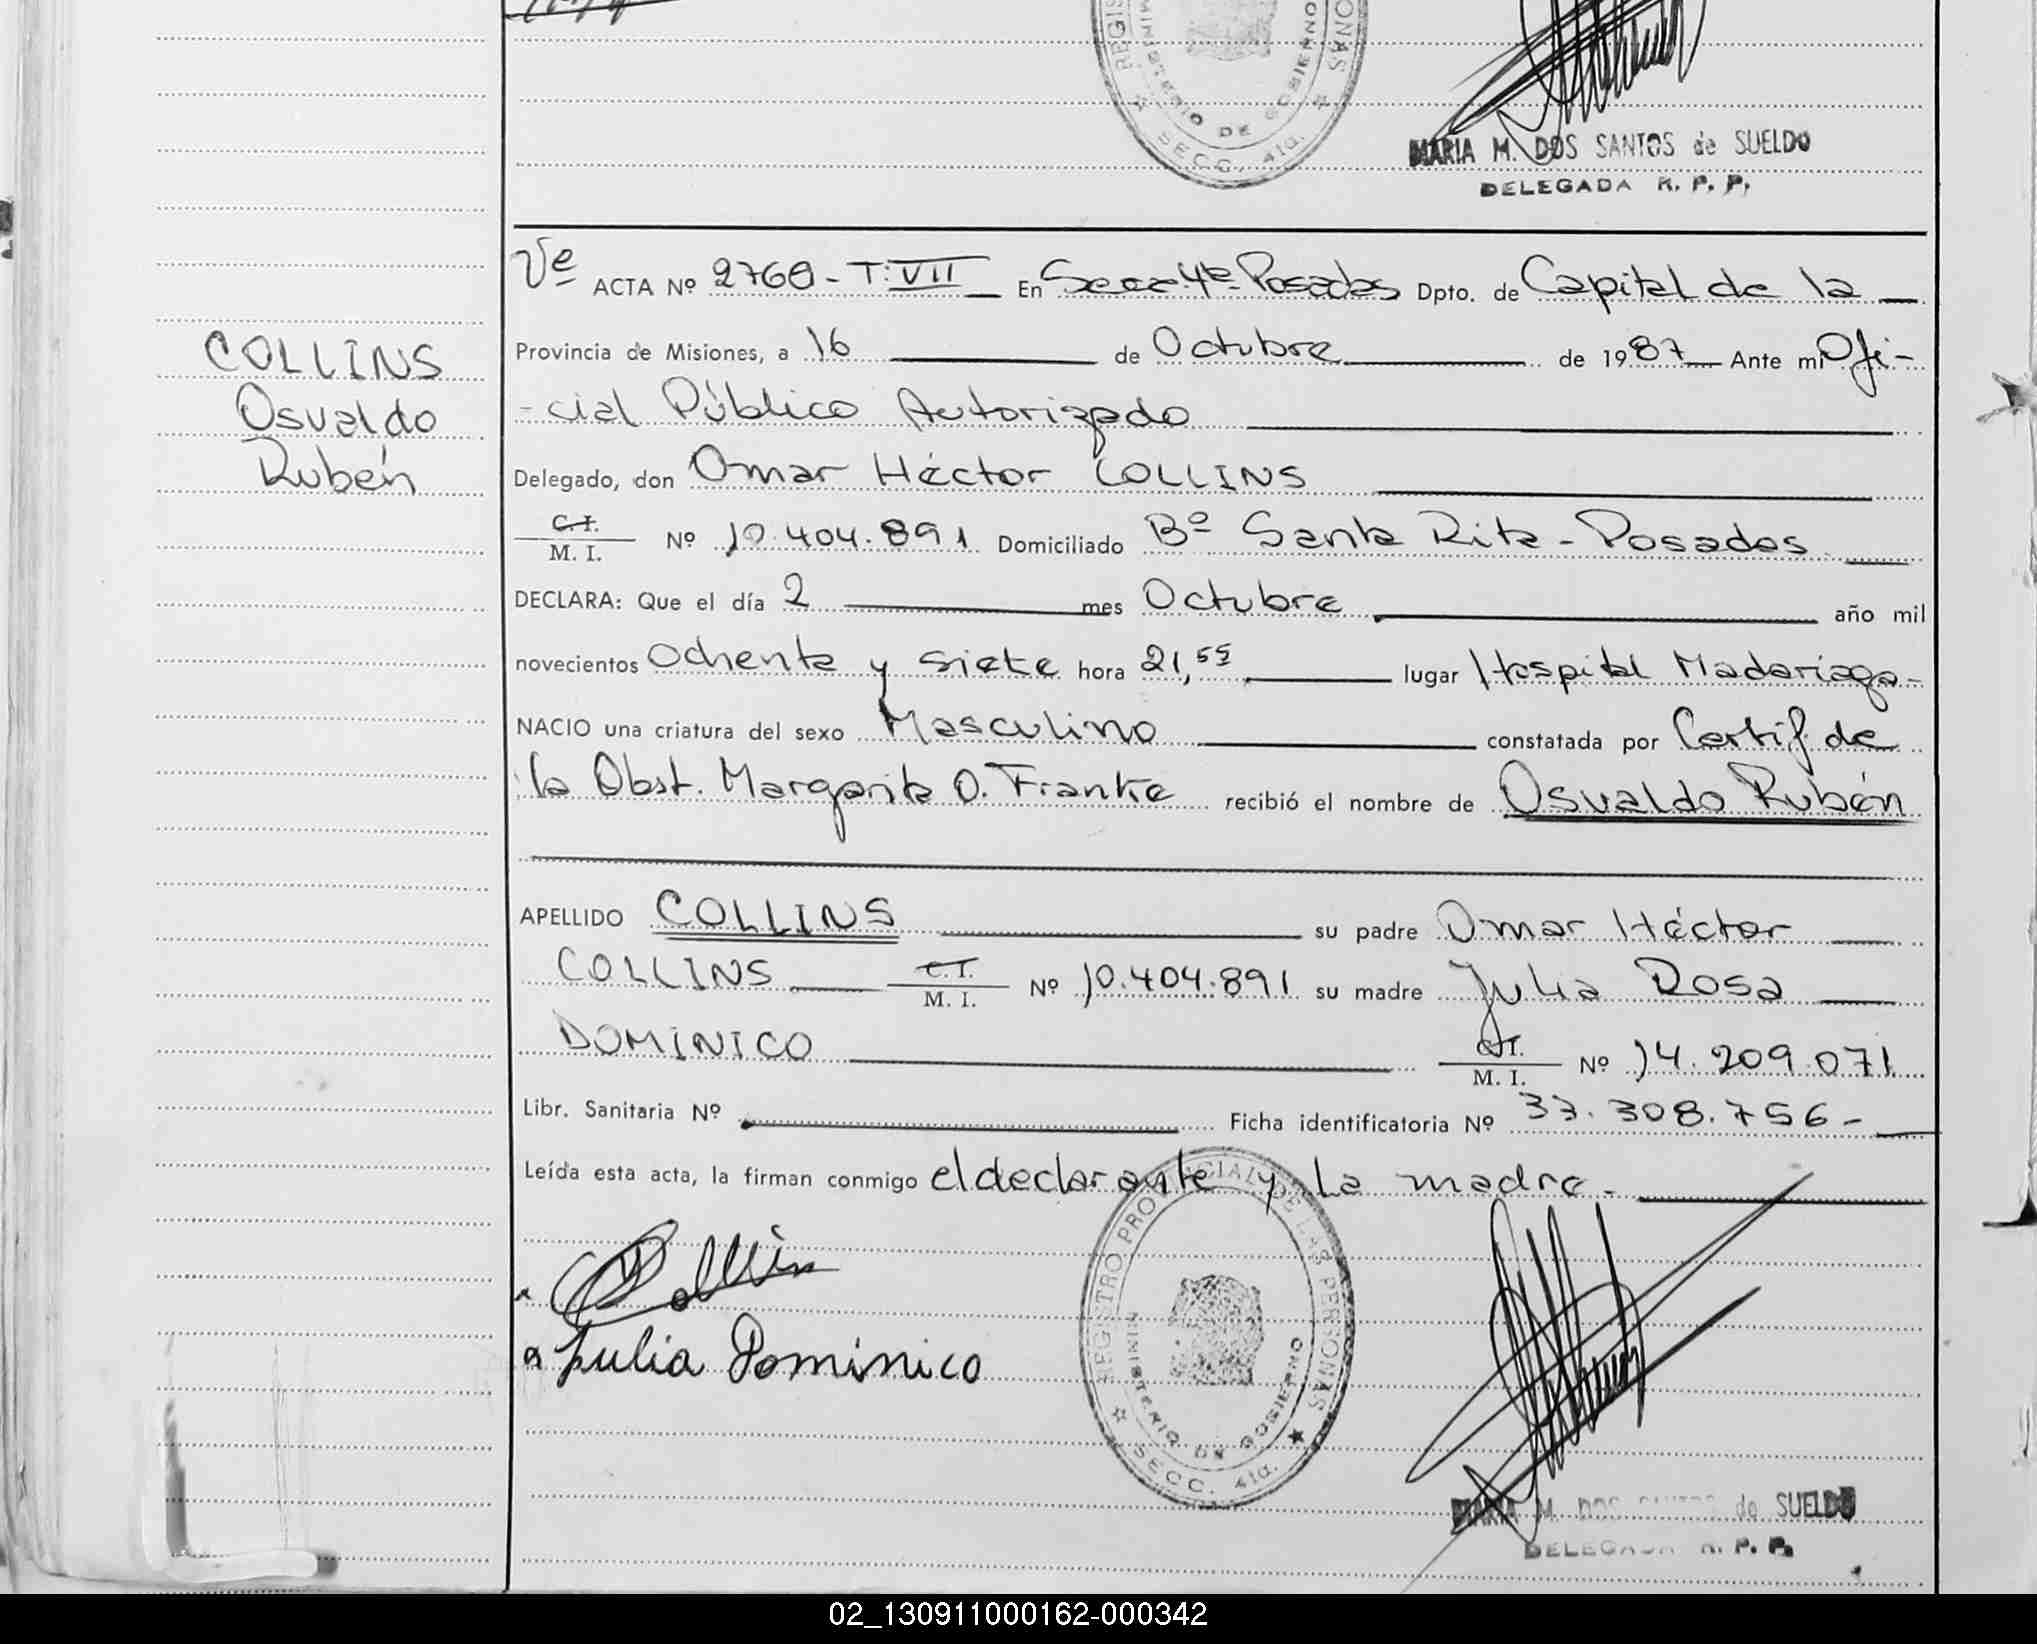 REGIS
ONAS
MINISTERIO DE GOBIERNO
SECC. 4ta.
MARIA M. DOS SANTOS de SUELDO
DELEGADA R. P. P.
COLLINS
Osvaldo
Rubén
ACTA Nº 2760 - T: VII En Secc 4ta Posadas Dpto. de Capital de la
Provincia de Misiones, a 16 de Octubre de 1987 Ante mi Ofi-
-cial Público Autorizado
Delegado, don Omar Héctor COLLINS
C.I.
M. I. Nº 10.404.891 Domiciliado Bº Santa Rita - Posadas
DECLARA: Que el día 2 mes Octubre año mil
novecientos Ochenta y siete hora 21,55 lugar Hospital Madariaga-
NACIO una criatura del sexo Masculino constatada por Certif. de
la Obst. Margarita O. Franke recibió el nombre de Osvaldo Rubén
APELLIDO COLLINS su padre Omar Héctor
COLLINS C.I.
M. I. Nº 10.404.891 su madre Julia Rosa
DOMINICO C.I.
M. I. Nº 14.209.071
Libr. Sanitaria Nº Ficha identificatoria Nº 33.308.756-
Leída esta acta, la firman conmigo el declarante y la madre.
Collin
Julia Dominico
REGISTRO PROVINCIAL DE LAS PERSONAS
MINISTERIO DE GOBIERNO
SECC. 4ta.
MARIA M. DOS SANTOS de SUELDO
DELEGADA R. P. P.
02_130911000162-000342